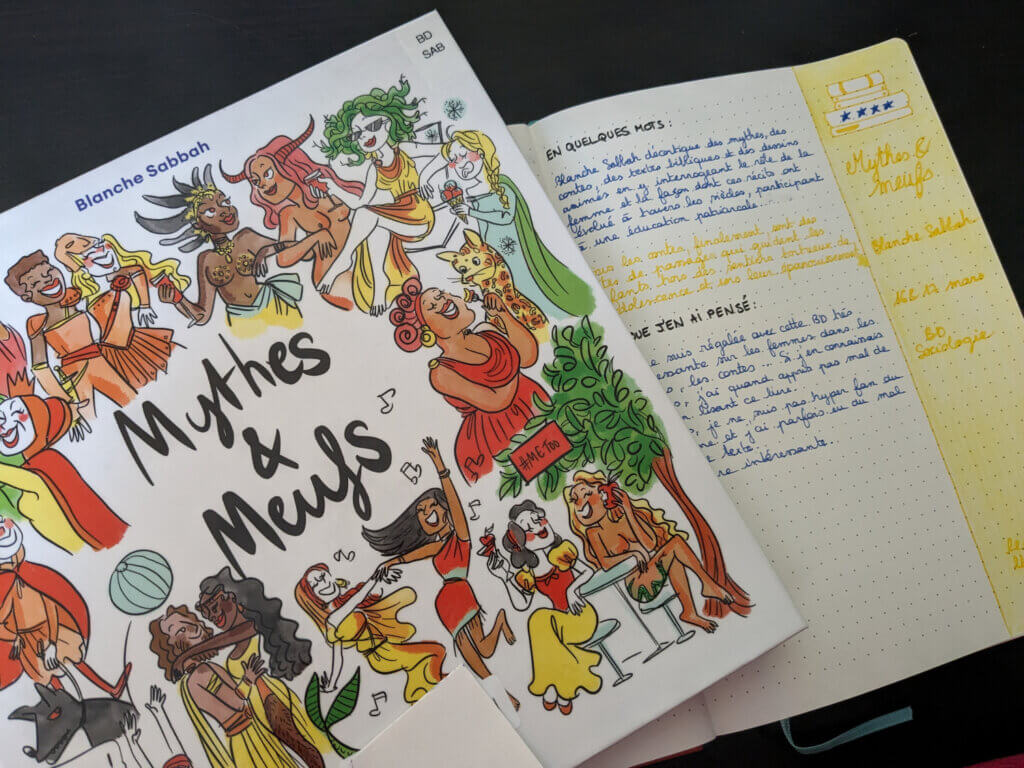 BD
SAB
Blanche Sabbah
Mythes
&
Meufs
#METOO
EN QUELQUES MOTS :
Blanche Sabbah décortique des mythes, des
contes, des textes bibliques et des dessins
animés en y interrogeant le rôle de la
femme et la façon dont ces récits ont
évolué à travers les siècles, participant
à une éducation patriarcale.
les contes, finalement sont des
de passages guident les
hors des sentiers tortueux de
dolescence et vers leur épanouissement
QUE J'EN AI PENSÉ :
suis régalée avec cette BD très
essante sur les femmes dans les
, les contes ... Si j'en connaissais
, j'ai quand appris pas mal de
lisant ce livre.
, je ne suis pas hyper fan du
et j'ai parfois eu du mal
texte
re intéressante.
Mythes &
Meufs
Blanche Sabbah
16 & 17 mars
BD
Sociologie